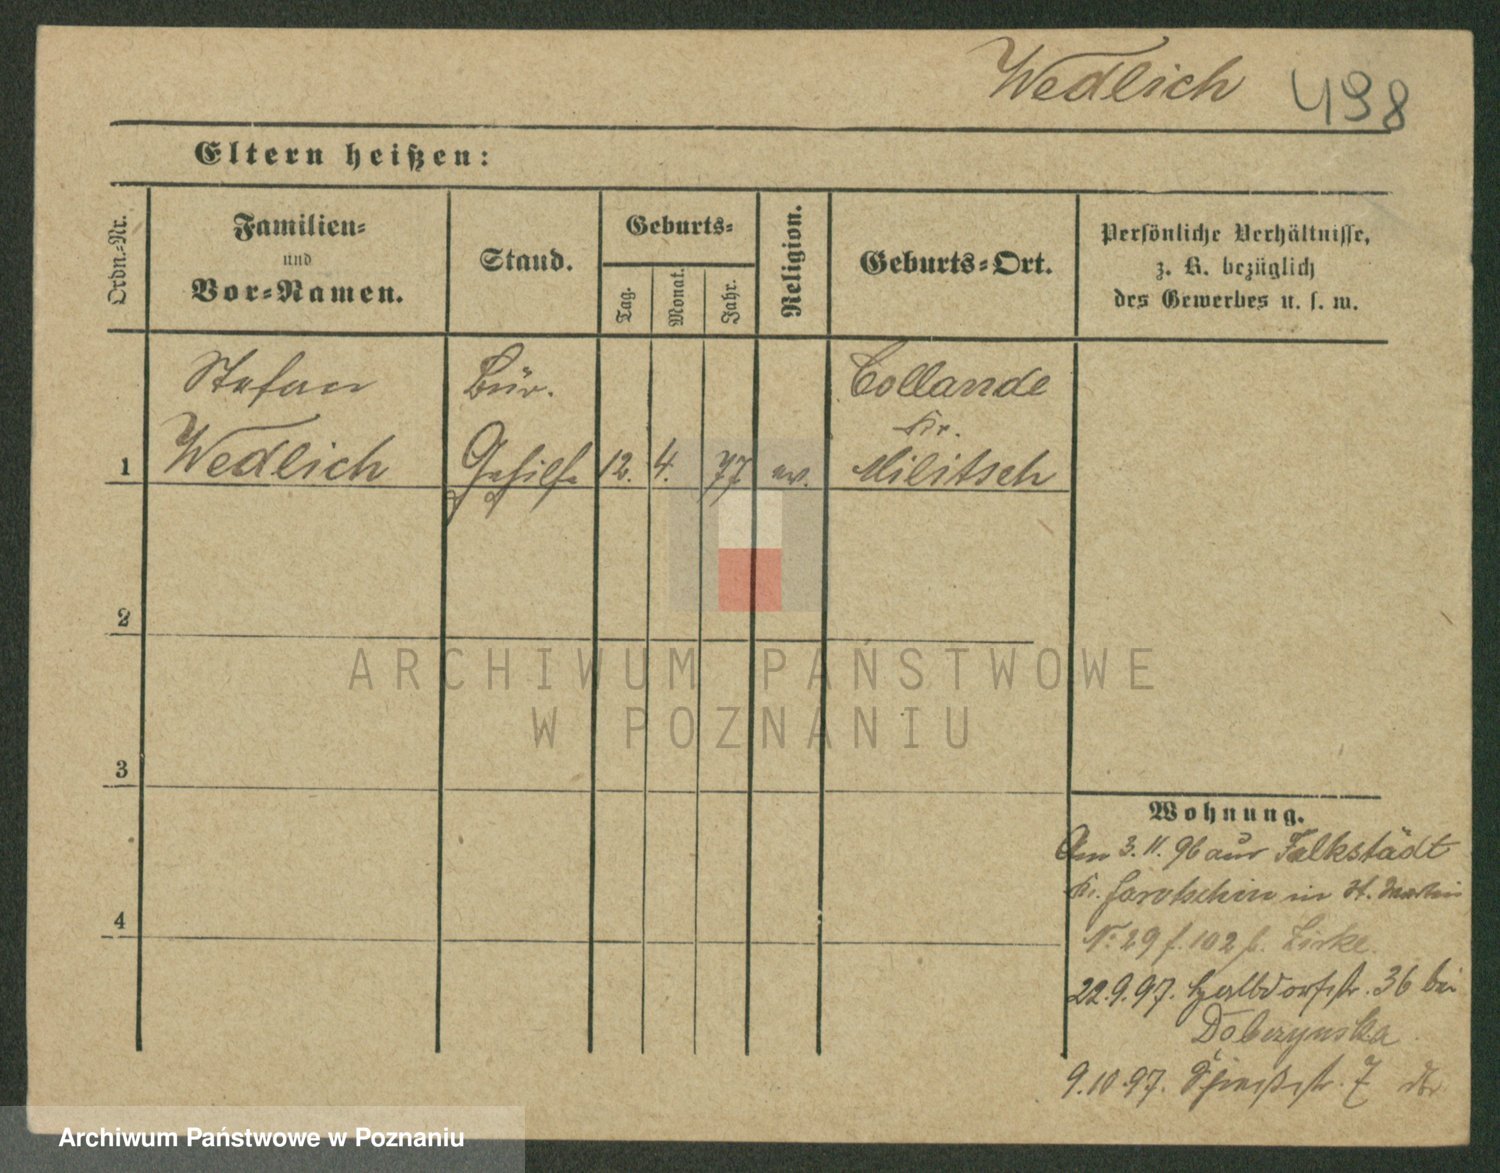 Wedlich 498
Eltern heißen:
Ordn.-Nr.
Familien-
und
Vor-Namen.
Stand.
Geburts-
Tag.
Monat.
Jahr.
Religion.
Geburts-Ort.
Persönliche Verhältnisse,
z. B. bezüglich
des Gewerbes u. s. w.
Stefan Bür. Collande
Kr.
1 Wedlich Gehilfe 12. 4. 77 ev. Militsch
2
3
4
Wohnung.
Am 3. 11. 96 aus Falkstädt
Kr. Jarotschin in St. Martin
No 29 f. 102 b. Zirke.
22.9.97. Halbdorfstr. 36 bei
Doberzynska
9.10.97. 7
ARCHIWUM PAŃSTWOWE
W POZNANIU
Archiwum Państwowe w Poznaniu